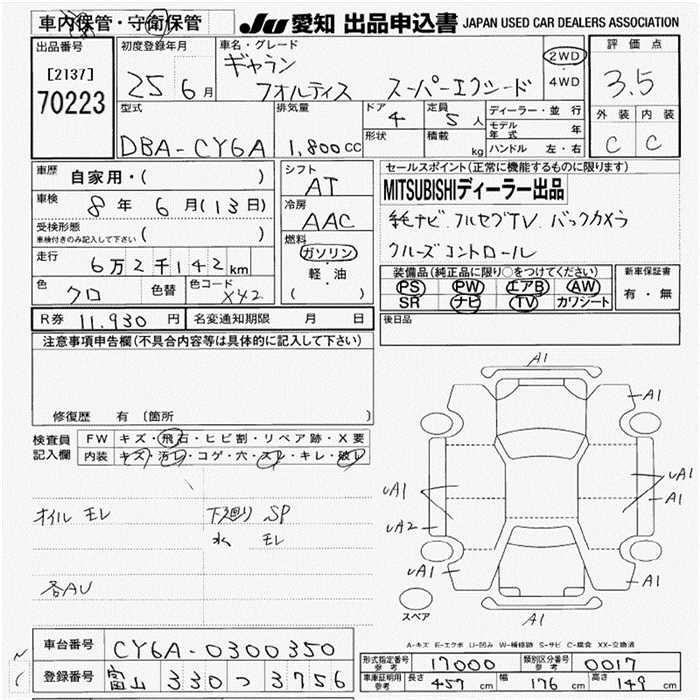 車内保管・守衛保管 JU 愛知 出品申込書 JAPAN USED CAR DEALERS ASSOCIATION
出品番号 初度登録年月 車名・グレード 評価点
[2137] 70223 25 6月 ギャラン フォルティス スーパーエクシード 2WD・4WD 3.5
型式 排気量 ドア 4 定員 5人 ディーラー・並行 外装 内装
DBA-CY6A 1,800CC 形状 積載 kg モデル年式 年 C C
ハンドル 左・右
車歴 自家用・( ) シフト AT セールスポイント(正常に機能するものに限ります)
車検 8年 6月(13日) 冷房 AAC MITSUBISHIディーラー出品
受検形態 車検付きのみ記入して下さい ( ) 純ナビ.フルセグTV.バックカメラ
走行 6万2千142km 燃料 ガソリン・軽・油 ( ) クルーズコントロール
色 クロ 色替 色コード X42 装備品(純正品に限り○をつけてください) 新車保証書
PS PW エアB AW 有・無
SR ナビ TV カワシート
R券 11,930円 名変通知期限 月 日 後日品
注意事項申告欄(不具合内容等は具体的に記入して下さい)
修復歴 有〔箇所 〕
検査員記入欄 FW キズ・飛石・ヒビ割・リペア跡・X要
内装 キズ・汚レ・コゲ・穴・スレ・キレ・破レ
オイル モレ 下廻り SP
水 モレ
各AU
A1
A1
uA1 uA1
A1
uA2
uA1 A1
スペア A1
A-キズ E-エクボ U-凹み W-補修跡 S-サビ C-腐食 XX-交換済
車台番号 CY6A-0300350
登録番号 富山 330 つ 3756
形式指定番号 参考 17000 類別区分番号 参考 0017
車庫証明用 参考 長さ 457cm 幅 176cm 高さ 149cm